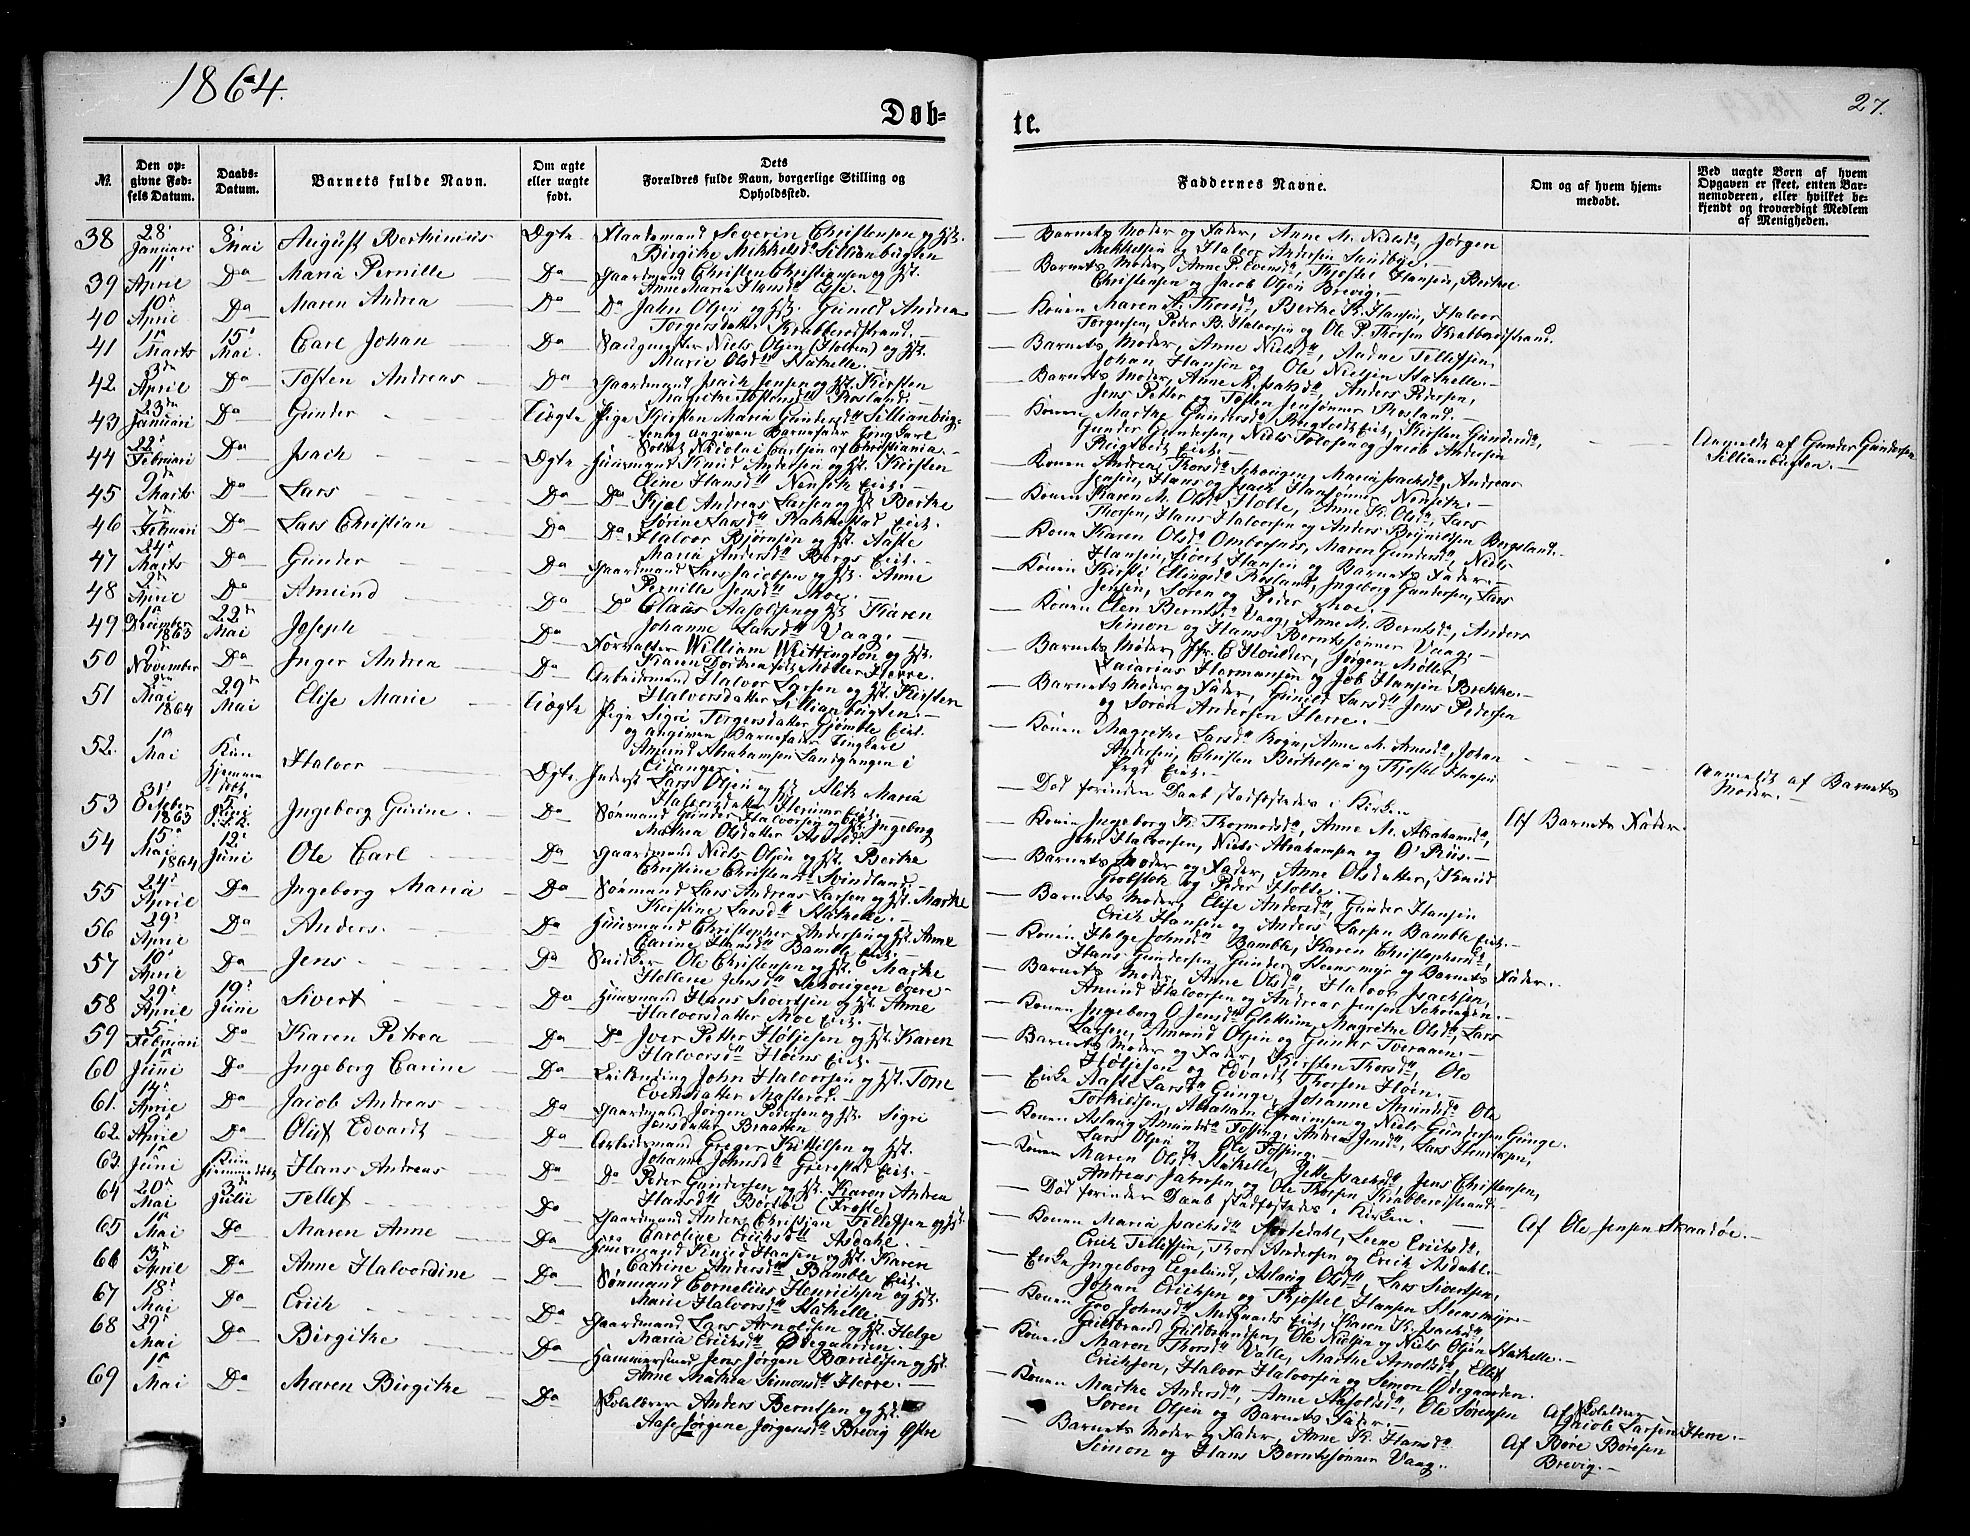 1864.
Døb-
te.
27.
№.
Den op-
givne Fød-
sels Datum.
Daabs-
Datum.
Barnets fulde Navn.
Om ægte
eller uægte
født.
Dets
Forældres fulde Navn, borgerlige Stilling og
Opholdssted.
Faddernes Navne.
Om og af hvem hjem-
medøbt.
Ved uægte Børn af hvem
Opgaven er skeet, enten Bar-
nemoderen, eller hvilket be-
kjendt og troværdigt Medlem
af Menigheden.
38 28 Januari 8 Mai August Bertinius Ægte Severin Christensen og
Birgithe Mikkelsd Sillianbugten
Barnets Moder og Fader, Anne M. Nielsd, Jørgen
Mikkelsen og Halvor Andersen Sundbye
39 11 April Do Maria Pernille Do Gaardmand Christen Christiansen og
Anne Maria Hansd
Barnets Moder, Anne P. Evensd, Thjostel Hansen, Berthe
Christensen og Jacob Olsen Brevig
40 10 April Do Maren Andrea Do Do Jahn Olsen og Gunild Andrea
Torgersdatter Krabberødstrand
Konen Maren A. Thorsd, Berthe K. Hansen, Halvor
Torgersen, Peder B. Halvorsen og Ole P. Thorsen Krabberødstrand
41 1 Marts 15 Mai Carl Johan Do Saugmester Niels Olsen (Holten) og
Marie Olsd Stathelle
Barnets Moder, Anne Nielsd, Aadne Tellefsen,
Johan Hansen og Ole Nielsen Stathelle
42 3 April Do Tosten Andreas Do Gaardmand Isach Jensen og Kirsten
Magrethe Rosland
Barnets Moder, Anne M. Isaksd, Anders Pedersen,
Jens Petter og Tosten Jensønner Rosland
43 23 Januari Do Gunder Uægte Pige Kirsten Maria Gundersd Sillianbug-
ten og angiven Barnefader Ungkarl
Nicolai Carlsen af Christiania
Konen Marthe Gundersd Rugtvedt Eiet, Kirsten Gundersd,
Gunder Gundersen, Niels Tolofsen og Jacob Andersen
Rugtvedt Eiet
Anmeldt af Gunder Gundersen
Sillianbugten
44 22 Februari Do Isach Ægte Huusmand Knud Andersen og Kirsten
Eline Hansd Nenseth Eiet
Konen Andrea Thorsd Schougen, Maria Isachsd, Andreas
Jensen, Hans og Isach Hansønner Nenseth
45 2 Marts Do Lars Do Do Kjøl Andreas Larsen og Berthe
Sørine Larsd Rakkestad Eiet
Konen Karen M. Olsd Holte, Anne K. Olsd, Lars
Thorsen, Hans Halvorsen og Anders Brynildsen Bergsland
46 7 Februari Do Lars Christian Do Do Halvor Bjørnsen og Aaste
Maria Andersd Bergs Eiet
Konen Karen Olsd Ombordsnes, Maren Gundersd, Niels
Hansen, Sivert Hansen og Barnets Fader
47 24 Marts Do Gunder Do Gaardmand Lars Jacobsen og Anne
Pernille Jensd Moe
Konen Kirsti Ellingsd Rosland, Ingeborg Gundersen, Lars
Jensen, Søren og Peder Moe
48 2 April Do Amund Do Do Claus Aasolfsen og Karen
Johanne Larsd Vaag
Konen Elen Berntsd Vaag, Anne M. Berntsd, Anders
Simon og Hans Berntssønner Vaag
49 1 December 1863 22 Mai Joseph Do Forvalter William Whittington og
Karen Dorthea født Møller Herre
Barnets Moder, Fr. C. Houlder, Jørgen Møller,
Zacarias Hermansen og Job Hansen Brekke
50 2 November Do Inger Andrea Do Arbeidsmand Halvor Larsen og Kirsten
Halvorsdatter Sillianbugten
Barnets Moder og Fader, Gunild Larsd, Jens Pedersen
og Søren Andersen Herre
51 2 Mai 1864 29 Mai Elise Marie Uægte Pige Sigri Torgersdatter Gjømble Eiet
og angiven Barnefader Ungkarl
Amund Abrahamsen Landgangen i
Eidanger
Konen Magrethe Larsd Rogn, Anne M. Amosd, Johan
Andersen, Christen Birkelsen og Thjostel Hansen
Eiet
Anmeldt af Barnets
Moder
52. 1 Mai Kun hjemmedøbt Halvor Ægte Inderst Lars Olsen og Aleth Maria
Halvorsdatter Eiet
Død forinden Daab stadfæstedes i Kirken
Af Barnets Fader
53 31 October 1863 5 Juni Ingeborg Gurine Do Sømand Gunder Halvorsen og Ingeborg
Mathea Olsdatter
Konen Ingeborg K. Thormodsd, Anne M. Abrahamsd,
John Halvorsen, Niels Abrahamsen og O. Riis
54 15 Mai 1864 12 Juni Ole Carl Do Gaardmand Niels Olsen og Berthe
Christine Christensd Svindland
Barnets Moder og Fader, Anne Olsdatter, Knud
Grobstok og Peder Holte
55 24 April Do Ingeborg Maria Do Sømand Lars Andreas Larsen og Marthe
Kirstine Larsd Stathelle
Barnets Moder, Elise Andersd, Gunder Hansen
Erich Hansen og Anders Larsen Bamble Eiet
56 29 April Do Anders Do Huusmand Christopher Andersen og Anne
Carine Hansd Bamble Eiet
Konen Helge Johnsd Bamble, Karen Christophersd,
Hans Gundersen, Gunder Steensmyr og Barnets Fader
57 10 April Do Jens Do Snidker Ole Christensen og Marthe
Hellene Jensd Schougen øvre
Barnets Moder, Anne Olsd, Halvor Isachsen,
Amund Halvorsen og Andreas Jensen Schougen
58 29 April 19 Juni Sivert Do Huusmand Hans Sivertsen og Anne
Halvorsdatter Moe Eiet
Konen Ingeborg O. Jensd Glittum, Magrethe Olsd, Lars
Larsen, Amund Olsen og Gunder Tveraaen
59 5 Februari Do Karen Petrea Do Do Iver Petter Høljesen og Karen
Halvorsd Høens Eiet
Barnets Moder og Fader, Kirsten Thorsd, Ole
Høljesen og Edvardt Thorsen Høen
60 1 Juni Do Ingeborg Carine Do Leilending John Halvorsen og Tone
Evensdatter
Enke Aaste Larsd Gunge, Johanne Amundsd, Ole
Torkildsen, Abraham Efraimsen og Niels Gundersen Gunge
61. 14 April Do Jacob Andreas Do Gaardmand Jørgen Pedersen og Sigri
Jensdatter Braaten
Konen Aslaug Amundsd Fossing, Andrea Jensd, Lars Henriksen,
Lars Olsen og Ole Fossing
62. 9 April Do Oluf Edvardt Do Arbeidsmand Greger Kittilsen og
Johanne Johnsd Grerestad Eiet
Konen Maren Olsd Stathelle, Jette Isachsd, Jens Christensen,
Andreas Jahnsen og Ole Thorsen Krabberødstrand
63. 1 Juni Kun hjemmedøbt Hans Andreas Do Do Peder Gundersen og Karen Andrea
Hansd Børtbø (Froste)
Død forinden Daab stadfæstedes i Kirken
Af Ole Jensen Skaadøe
64 20 Mai 3 Julie Tellef Do Gaardmand Anders Christian Tellefsen og
Caroline Erichsd Asdahl
Konen Maria Isachsd, Lene Erichsd,
Erich Tellefsen, Thor Andersen og Erich Asdahl
65 1 Mai Do Maren Anne Do Huusmand Knud Hansen og Karen
Catrine Andersd Bamble Eiet
Enke Ingeborg Egelund, Aslaug Olsd, Lars Sivertsen,
Johan Erichsen og Thjostel Hansen Steensmyr
66 13 April Do Anne Halvordine Do Sømand Cornelius Henrichsen og
Marie Halvorsd Stathelle
Konen Johnsd Eiet, Karen K. Isachsd,
Guldbrand Guldbrandsen, Ole Nielsen og Niels Olsen Stathelle
67 18 Mai Do Erich Do Gaardmand Lars Arnoldsen og Helge
Maria Erichsd Ødegaarden
Konen Maren Thorsd Valle, Marthe Arnoldsd, Ellef
Erichsen, Halvor Halvorsen og Simon Ødegaarden
68 29 Mai Do Birgithe Do Hammersmed Jens Jørgen Bareldsen og
Anne Mathea Simonsd Herre
Konen Marthe Andersd, Anne Aasolfsd, Ole Sørensen
Søren Olsen og Barnets Fader
Af Jacob Larsen Herre
69 1 Mai Do Maren Birgithe Do Skolelærer Anders Berntsen og
Aase Jørgine Jørgensd Brevig Østre
Barnets Moder og Fader, Anne K. Hansd
Simon og Hans Berntssønner Vaag
Af Børe Børesen
Brevig